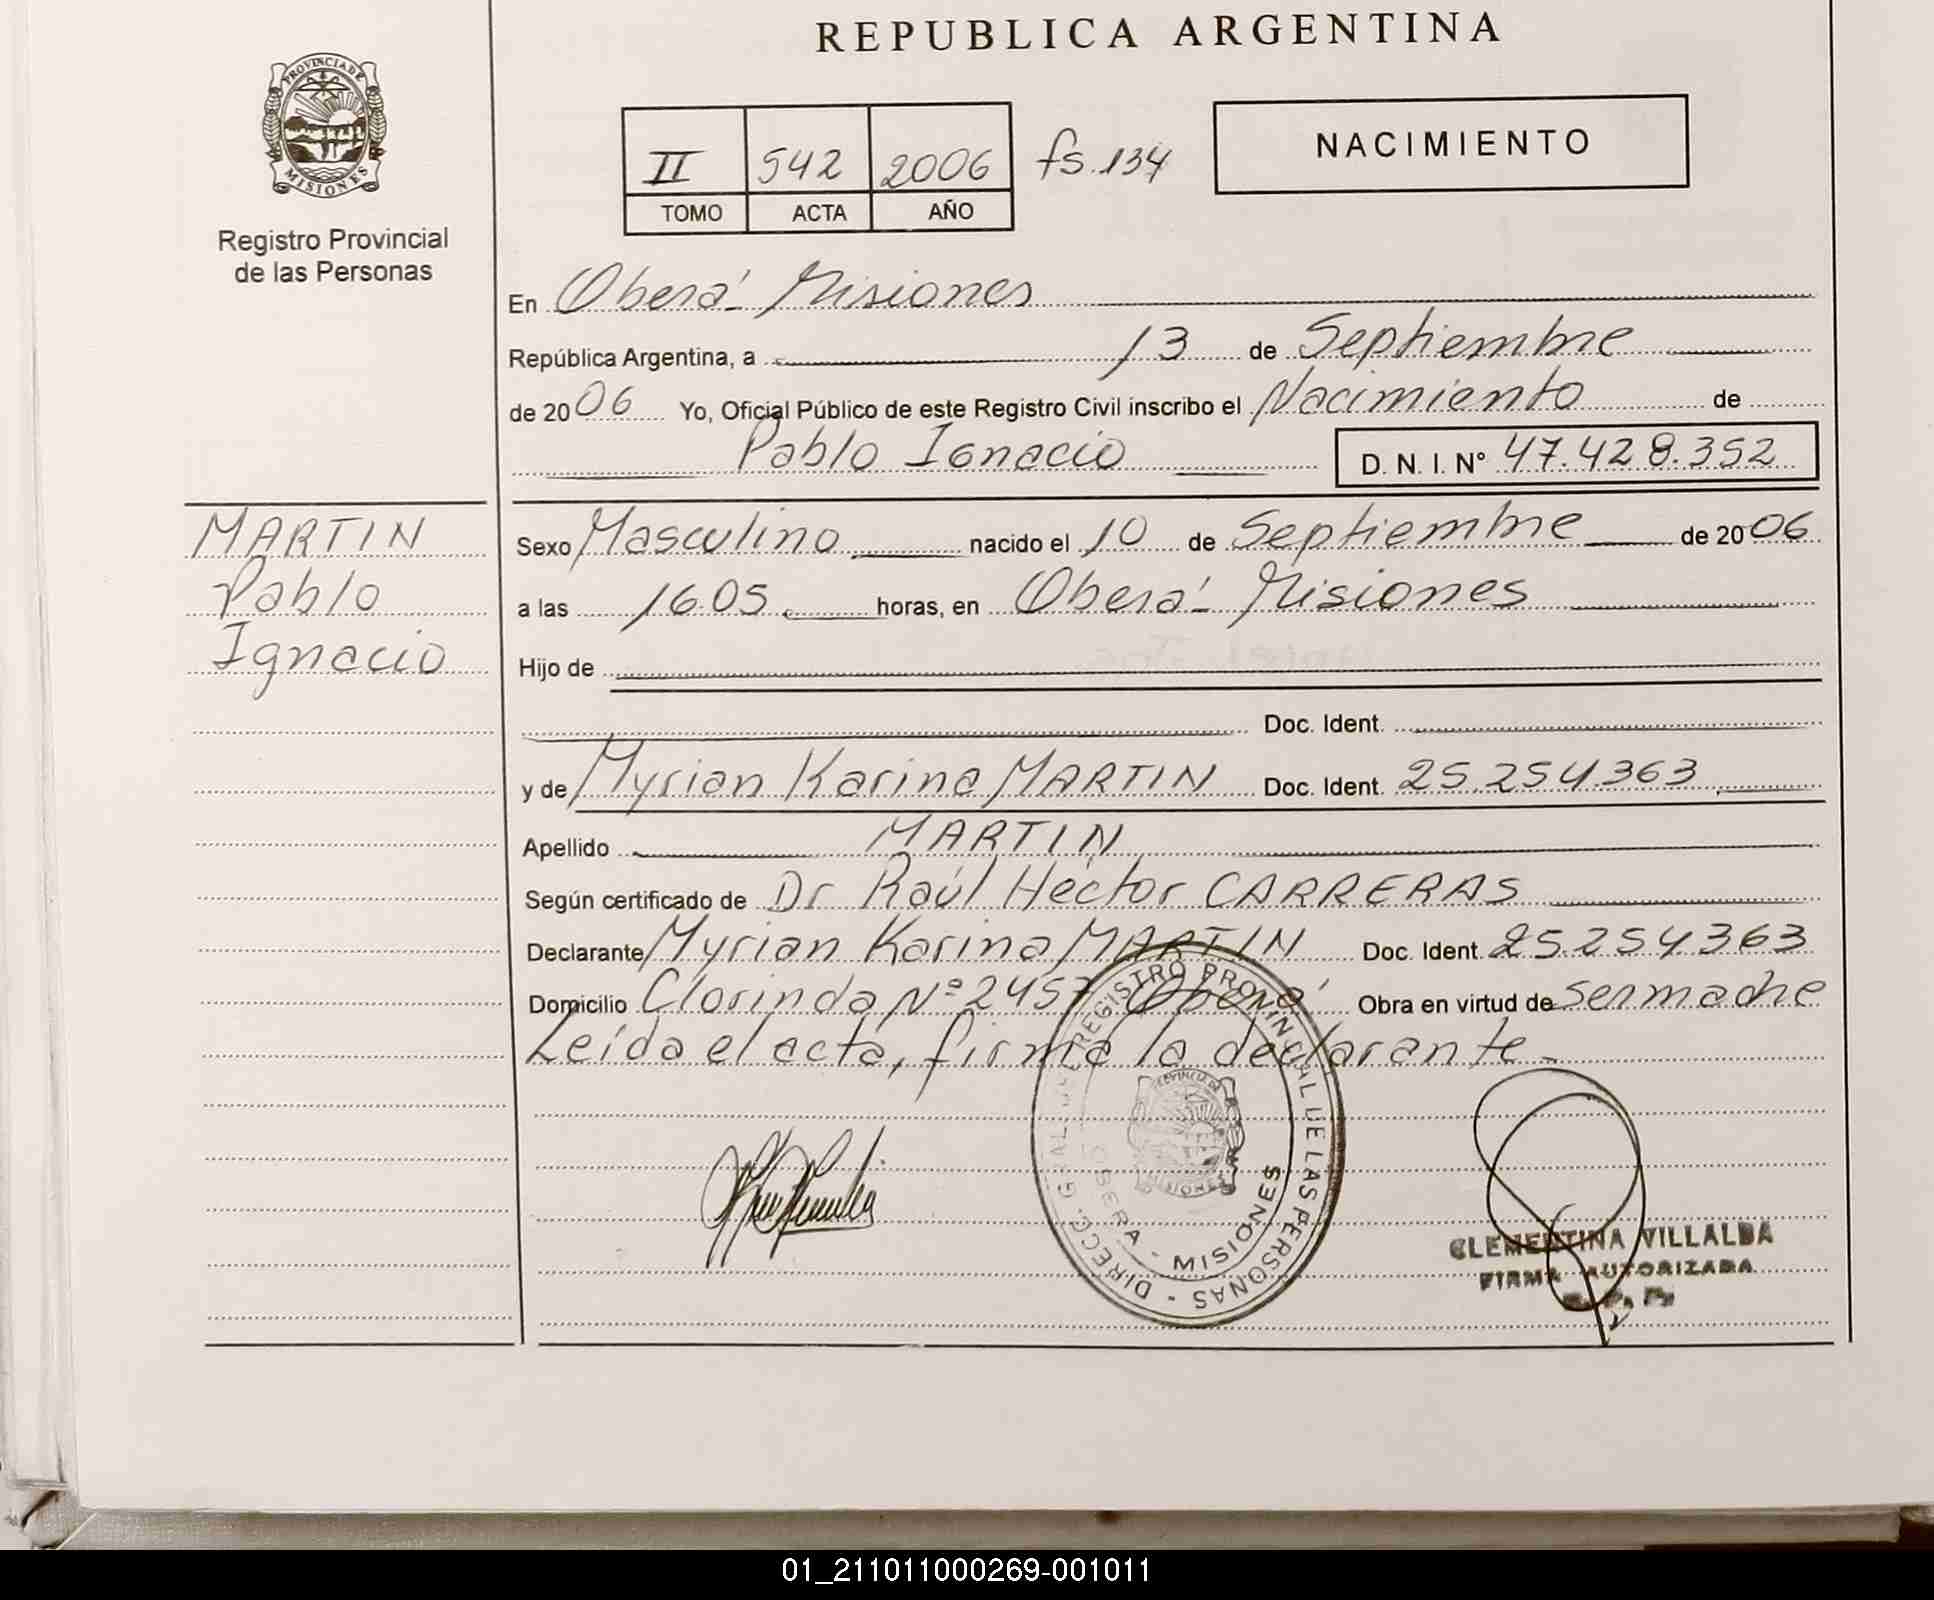 REPUBLICA ARGENTINA
PROVINCIA DE
MISIONES
Registro Provincial
de las Personas
II 542 2006 fs. 134
TOMO ACTA AÑO
NACIMIENTO
En Oberá - Misiones
República Argentina, a 13 de Septiembre
de 2006 Yo, Oficial Público de este Registro Civil inscribo el Nacimiento de
Pablo Ignacio D. N. I. Nº 47.428.352
MARTIN
Pablo
Ignacio
Sexo Masculino nacido el 10 de Septiembre de 2006
a las 16.05 horas, en Oberá - Misiones
Hijo de
Doc. Ident.
y de Myrian Karina MARTIN Doc. Ident. 25.254.363
Apellido MARTIN
Según certificado de Dr Raúl Héctor CARRERAS
Declarante Myrian Karina MARTIN Doc. Ident. 25.254.363
Domicilio Clorinda Nº 2457 Oberá Obra en virtud de ser madre
Leída el acta, firma la declarante.
DIRECC. GRAL. DEL REGISTRO PROVINCIAL DE LAS PERSONAS -
PROVINCIA DE
MISIONES
OBERA - MISIONES
CLEMENTINA VILLALBA
FIRMA AUTORIZADA
01_211011000269-001011